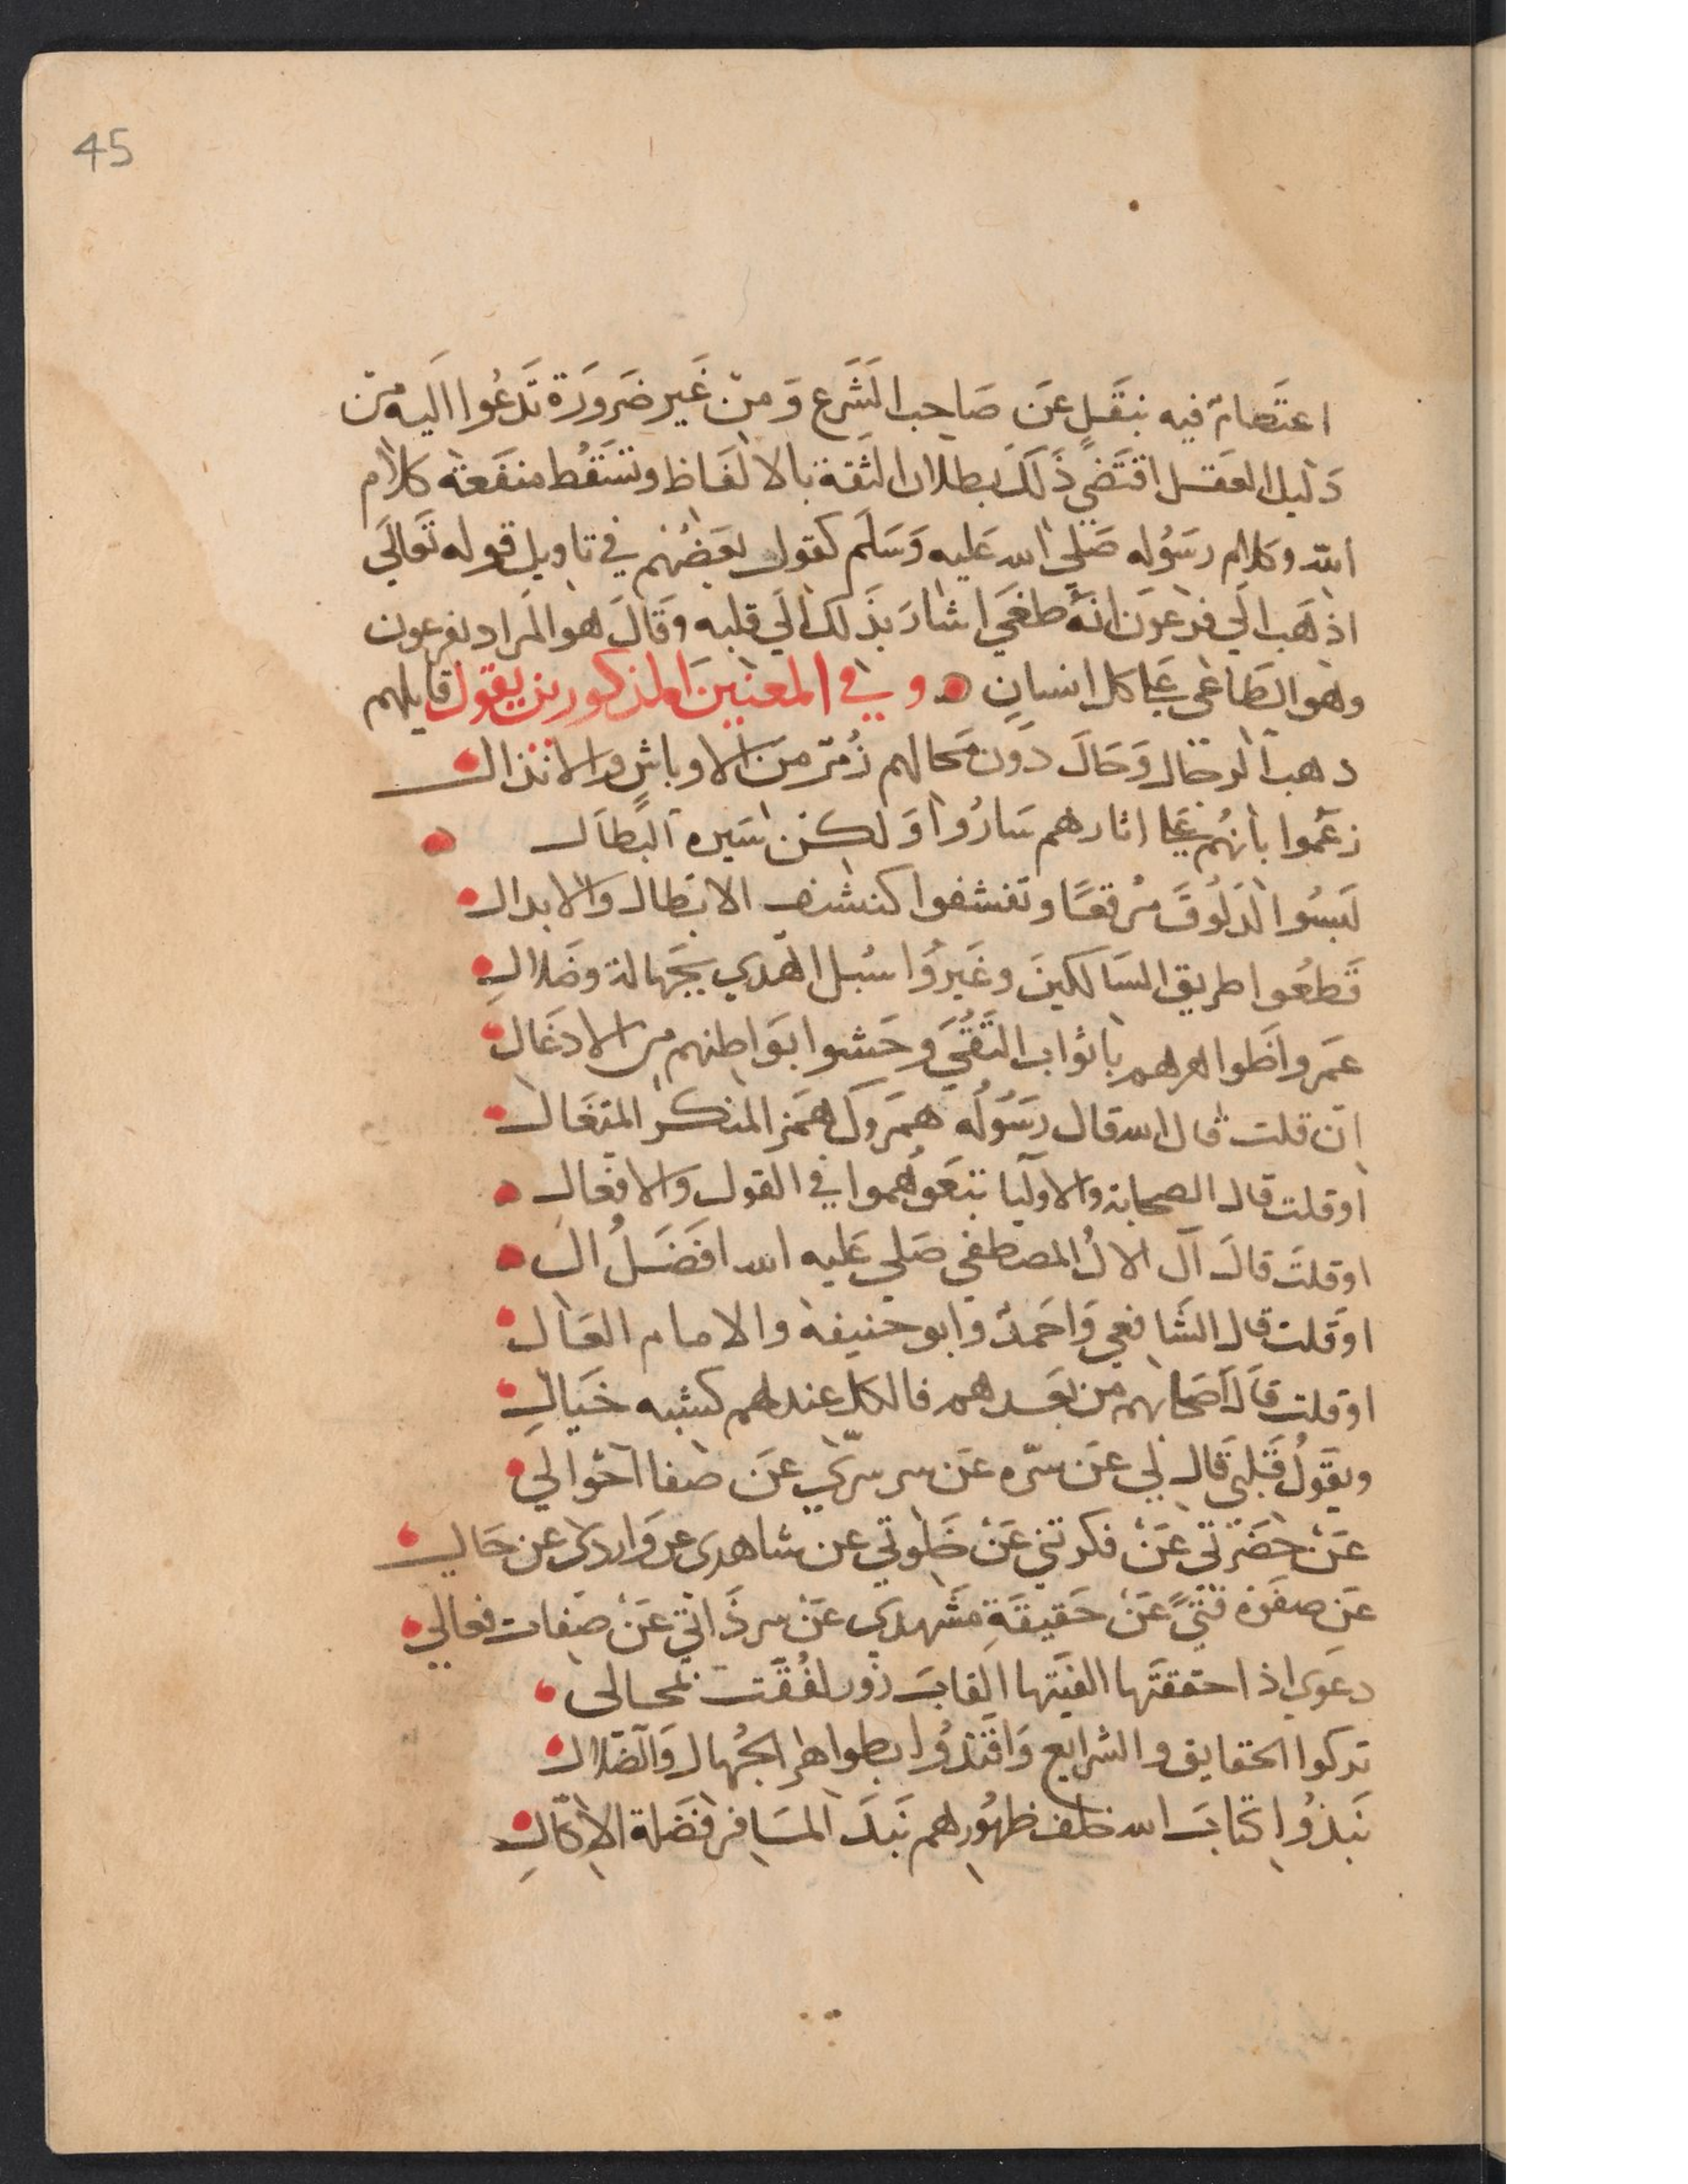 45
اعتصام فيه بنقل عن صاحب الشرع ومن غير ضرورة تدعوا اليه من
دليل العقل اقتضي ذلك بطلان الثقة بالالفاظ وتسقط منفعة كلام
الله وكلام رسوله صلي الله عليه وسلم كقول بعضهم في تاويل قوله تعالي
اذهب الي فرعون انه طغي اشار بذلك الي قلبه وقال هو المراد بفرعون
وهو الطاغي على كل انسان ه وفي المعنيين المذكورين يقول قايلهم
ذهب الرجال وحال دون محالهم زمر من الاوباش والانذال
زعموا بانهم على اثارهم ساروا ولكن سيره البطال
لبسوا الدلوق مرقعا وتقشفوا كتقشف الابطال والابدال
قطعوا طريق السالكين وغيروا سبل الهدي بجهالة وضلال
عمروا ظواهرهم باثواب التقي وحشوا بواطنهم من الادغال
ان قلت قال الله قال رسوله همزوك همز المنكر المتغال
اوقلت قال الصحابة والاوليا تبعوهموا في القول والافعال
اوقلت قال آل الال المصطفي صلي عليه الله افضل ال
اوقلت قال الشافعي واحمد وابو حنيفة والامام العال
اوقلت قال اصحابهم من بعدهم فالكل عندهم كشبه خيال
ويقول قلبي قال لي عن سره عن سر سري عن صفا احوالي
عن حضرتي عن فكرتي عن خلوتي عن شاهدي عن واردي عن حالي
عن صفوه عن حقيقة مشهدي عن سر ذاتي عن صفات فعالي
دعوي اذا حققتها الفيتها القاب زور لفقت بمحالى
تركوا الحقايق والشرايع واقتدوا بظواهر الجهال والضلال
نبذوا كتاب الله خلف ظهورهم نبذ المسافر فضلة الاكال